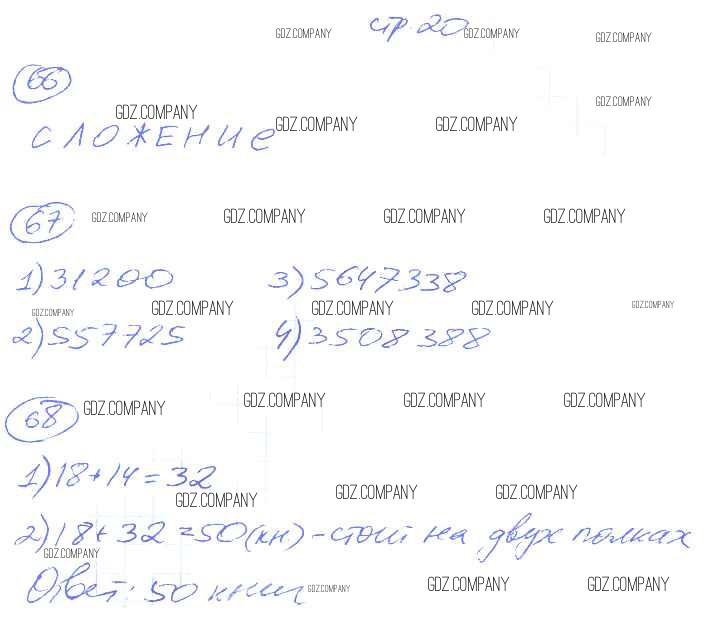 GDZ.COMPANY стр. 20 GDZ.COMPANY GDZ.COMPANY
66
GDZ.COMPANY GDZ.COMPANY
СЛОЖЕНИЕ GDZ.COMPANY GDZ.COMPANY
67 GDZ.COMPANY GDZ.COMPANY GDZ.COMPANY GDZ.COMPANY
1) 31200 3) 5647338
GDZ.COMPANY GDZ.COMPANY GDZ.COMPANY GDZ.COMPANY GDZ.COMPANY
2) 557725 4) 3508388
68 GDZ.COMPANY GDZ.COMPANY GDZ.COMPANY GDZ.COMPANY
1) 18+14=32
GDZ.COMPANY GDZ.COMPANY GDZ.COMPANY
2) 18+32=50(кн) - стоит на двух полках
GDZ.COMPANY
Ответ: 50 книг GDZ.COMPANY GDZ.COMPANY GDZ.COMPANY